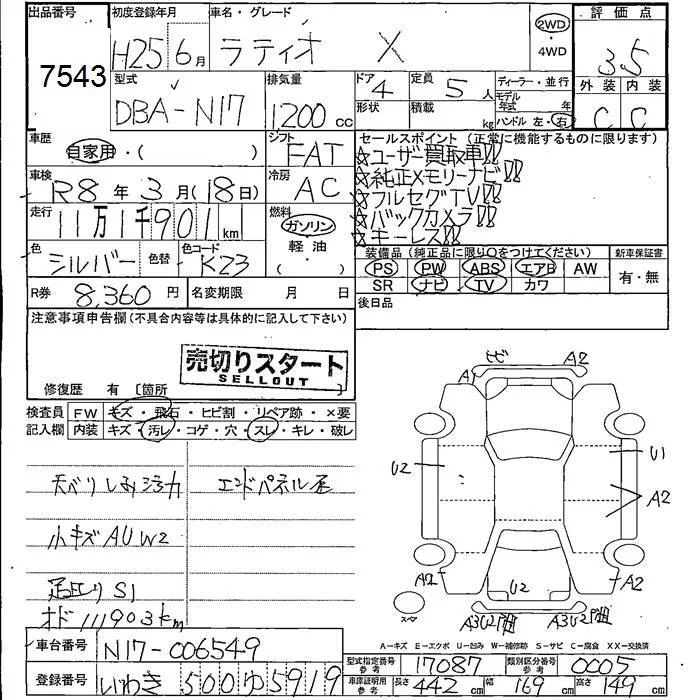 出品番号 7543
初度登録年月 H25年6月
車名・グレード ラティオ X
2WD ・ 4WD
評価点 3.5
外装 内装
C C
型式 DBA-N17
排気量 1200cc
ドア 4 定員 5人
形状 積載 kg
ディーラー・並行
モデル年式 年
ハンドル 左・右
車歴 自家用・( )
シフト FAT
車検 R8年3月(18日)
冷房 AC
走行 11万1千901km
燃料 ガソリン 軽油 ( )
色 シルバー 色替 色コード K23
R券 8,360円 名変期限 月 日
セールスポイント(正常に機能するものに限ります)
☆ユーザー買取車!!
☆純正Xモリーナビ!!
☆フルセグTV!!
☆バックカメラ!!
☆キーレス!!
装備品(純正品に限り○をつけてください) 新車保証書
PS PW ABS エアB AW 有・無
SR ナビ TV カワ
後日品
注意事項申告欄(不具合内容等は具体的に記入して下さい)
売切りスタート
SELLOUT
修復歴 有 〔箇所 〕
検査員 FW キズ・飛石・ヒビ割・リペア跡・×要
記入欄 内装 キズ・汚レ・コゲ・穴・スレ・キレ・破レ
エンドパネル
小キズ AU W2
S1
オド 111903km
ヒビ A2
A1
U2 U1
A2
A1 U2 A2
スペア A3U2 A3U2
A-キズ E-エクボ U-凹み W-補修跡 S-サビ C-腐食 XX-交換済
車台番号 N17-006549
登録番号 いわき 500 ゆ 5919
型式指定番号 参考 17087 類別区分番号 参考 0005
車庫証明用 参考 長さ 442cm 幅 169cm 高さ 149cm